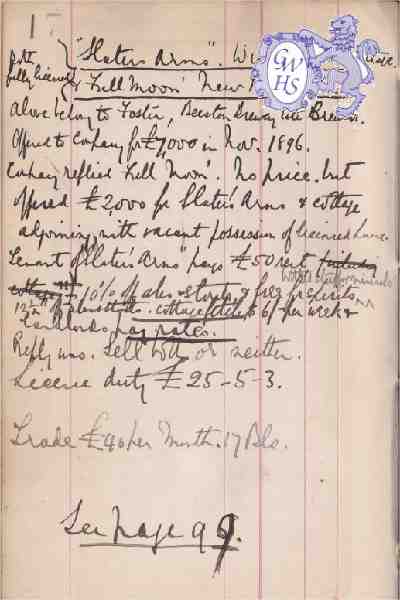 17
Both fully licensed
"Slaters Arms".
& Full Moon' New
above belong to Foster, Beeston Brewery
Offered to Company for £7,000 in Nov. 1896.
Company refused 'Full Moon'. No price. but
offered £2,000 for Slaters Arms & cottage
adjoining with vacant possession of licensed house
Tenant of Slaters Arms pays £50 rent
10% off ales & stouts & free
12½% off
Landlords pay rates.
Reply was. Sell both or neither.
Licence duty £25-5-3.
Trade £40 per Month. 17 Bls.
See page 99.
GWHS